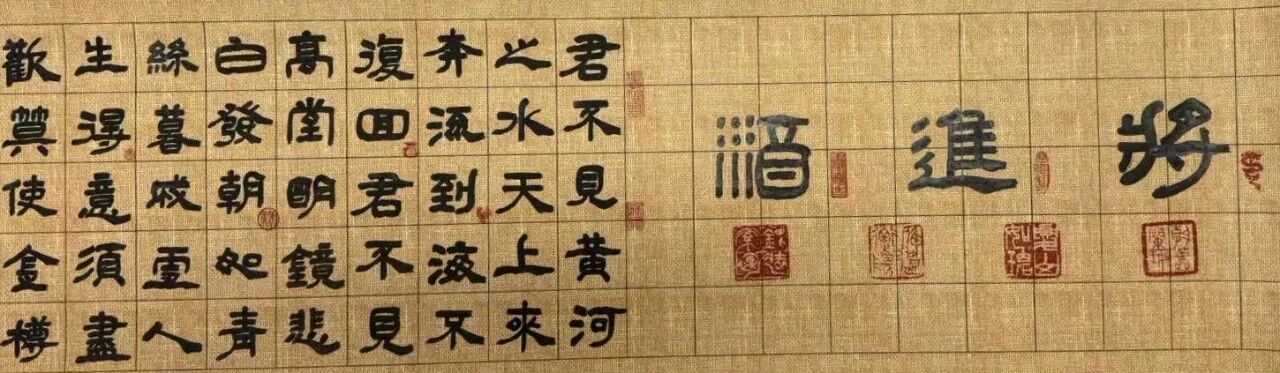 將進酒
君不見黃河
之水天上來
奔流到海不
復回君不見
高堂明鏡悲
白發朝如青
絲暮成雪人
生得意須盡
歡莫使金樽